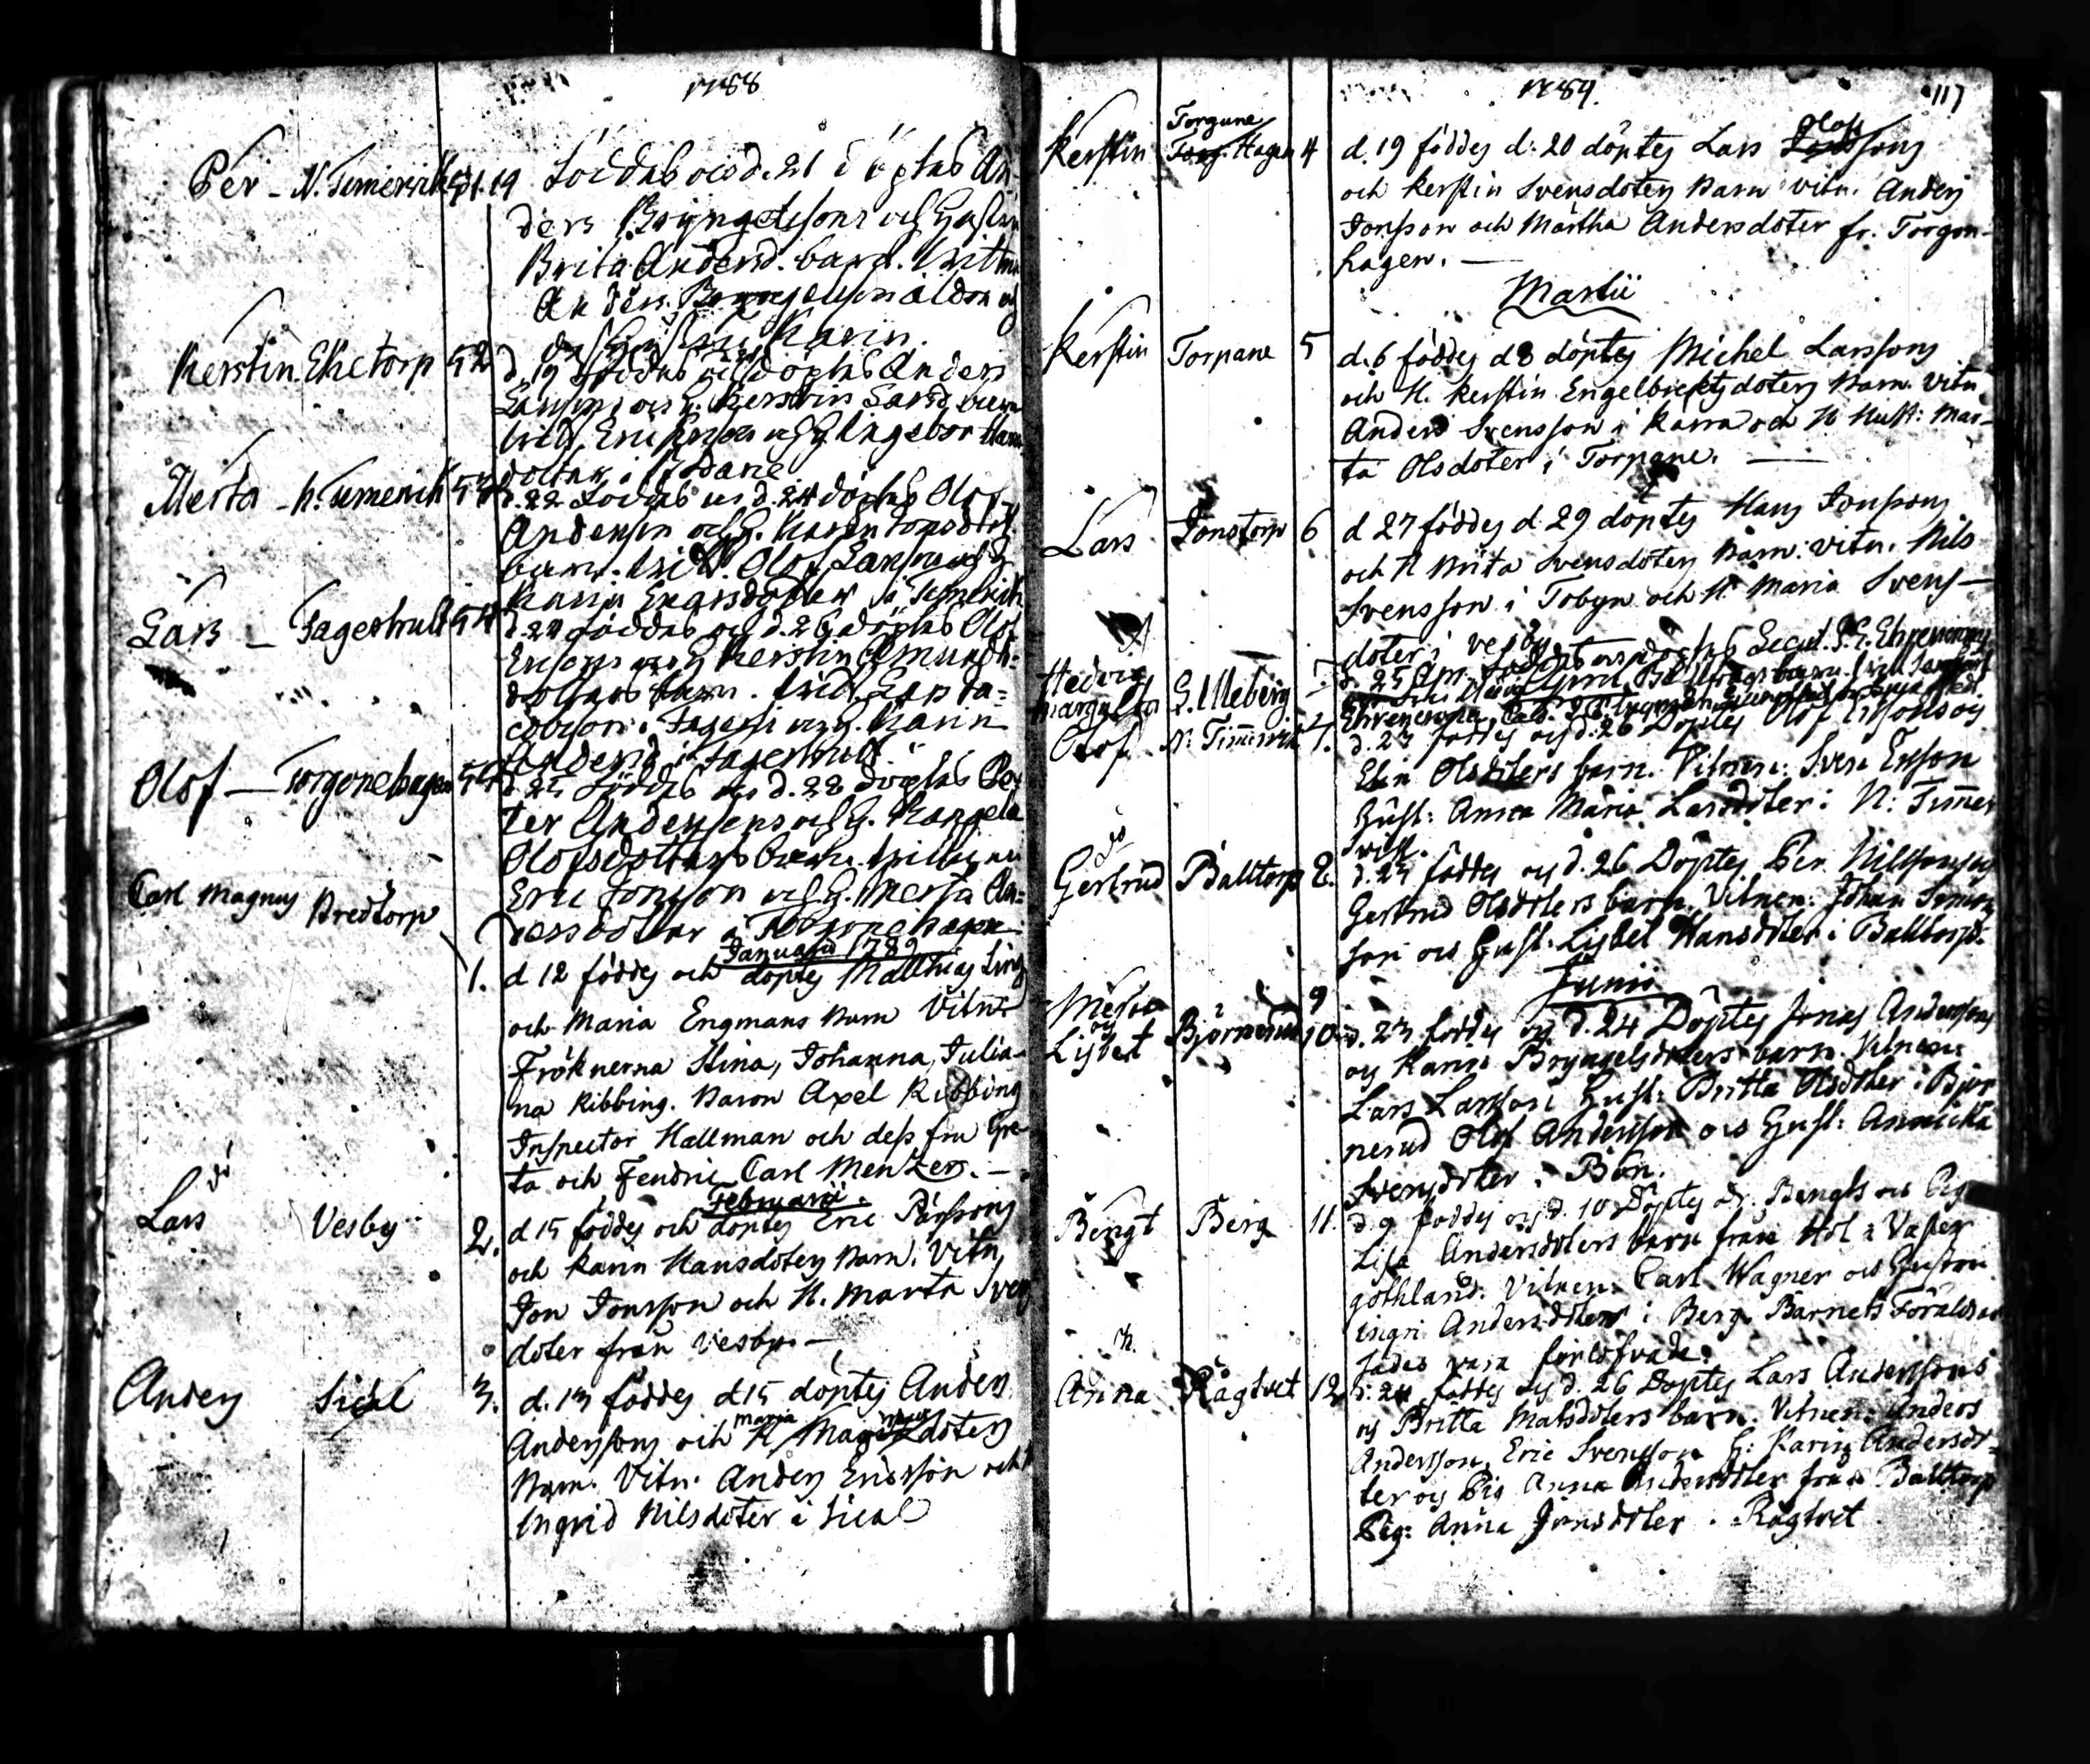 1788
Per - N. Timervik 51. 19 föddes ocs d. 21 döptes An-
ders Bryngelssons och Hustru
Brita Andersd. barn. Vittn.
Anders Bryngelsson äldre och
des Hustru Karin.
Kerstin Eketorp 52 d. 19 föddes och döptes Anders
Larssons och h. Kerstin Larsd. barn
Vitt. Eric och h. Ingebor
dotter i
Merta - N. Timervik 53 d. 22 föddes och d. 24 döptes Olof
Anderssons och h. Karin Jonsdott.
barn. Vitt. Olof Larsson och h.
Kaisa i Timervik
Lars - Fagerhult 54 d. 24 föddes och d. 26 döptes Olof
Ericsons och h. Kerstin Amunds-
dotters barn. Vitt. Ja-
cobson i och h. Karin
Andersd. i Fagerhult.
Olof - Torgonehagen d. 25 föddes och d. 28 döptes Pe-
ter Anderssons och h.
Olofsdotters barn. Vittnen
Eric Jonsson och h. Merta An-
dersdotter i Torgonehagen
Januarii 1789
Carl Magnus Bredtorp 1. d 12 föddes och döptes Matthias
och Maria Engmans Barn Vitn:
Fröknerna Stina, Johanna, Julia-
na Ribbing. Baron Axel Ribbing
Inspector Hallman och dess fru Gre-
ta och Fendric Carl Menzer. -
Februarii.
Lars Vesby 2. d 15 föddes och döptes Eric Pärssons
och Karin Hansdoters Barn. Vitn.
Jon Jonsson och H. Marta Svens
doter från Vesby. -
Anders Sical 3. d. 13 föddes d 15 döptes Anders
Anderssons och H maria Magnusdoters
Barn. Vitn. Anders Ericsson och H
Ingrid Nilsdoter i Sical
1789. 117
Kerstin Torgune Hagen 4 d. 19 föddes d: 20 döptes Lars Olofssons
och Kerstin Svensdoters Barn vitn. Anders
Jonsson och Märtha Andersdoter fr. Torgon-
hagen. -
Martii
Kerstin Torpane 5 d. 6 föddes d 8 döptes Michel Larssons
och H. Kerstin Engelbrektsdoters Barn. Vitn
Anders Svensson i Kärra och H Hust: Mar-
ta Olsdoter i Torpane. -
Lars Jonstorp 6 d 27 föddes d. 29 döptes Hans Jonssons
och H Brita Svensdoters Barn. Vitn. Nils
Svensson i Tobyn och H. Maria Svens-
doter i Vesby
Hedvig Margareta G. Ulleberg 7 d. 25 April föddes och döptes
Olof N: Timervik 7. d. 23 föddes och d. 26 Döptes Olof Ersons och
Elin Olsdoters barn. Vitnen: Sven Erson
Hust: Anna Maria Larsdoter i N: Timer
vik.
Gertrud Balltorp 8. d. 25 föddes och d. 26 Döptes Per Nilssons och
Gertrud Olsdoters barn. Vitnen: Johan Simon
son och Hust: Lisbet Hansdoter i Balltorp.
Junii
Merta och Lisbet Björnerud 9 10. d. 23 föddes och d. 24 Döptes Jonas Anderssons
och Karin Bryngelsdoters barn. Vitnen:
Lars Larsson Hust: Britta Olsdoter i Björ
nerud Olof Andersson och Hust: Annicka
Svensdoter i Bön.
Bengt Berg 11. d. 9 föddes och d. 10 Döptes Bengts och Pig
Lisa Andersdoters barn från Hol i Väster
göthland. Vitnen: Carl Wagner och Hustru
Ingri Andersdoter i Berg. Barnets Föräldrar
sades vara förlofvade.
Anna Rågtvet 12 d. 24 föddes och d. 26 Döptes Lars Anderssons
och Britta Matsdoters barn. Vitnen: Anders
Andersson, Eric Svensson H: Karin Andersdo-
ter och Pig Anna Andersdoter från Balltorp
Pig: Anna Jonsdoter i Rågtvet